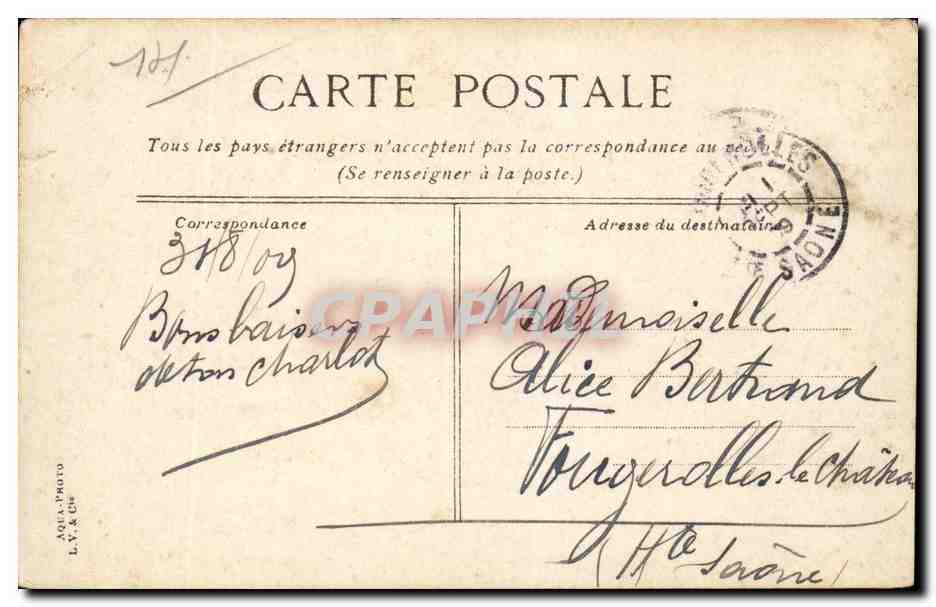 CARTE POSTALE
Tous les pays étrangers n'acceptent pas la correspondance au
(Se renseigner à la poste.)
FOUGEROLLES
1
SEPT
09
SAONE
Correspondance
Adresse du destinataire
31/8/09
Bons baisers
de ton Charlot
Mademoiselle
Alice Bertrand
Fougerolles-le-Château
(Hte Saône)
AQUA-PHOTO
L. V. & Cie
CPAPHIL